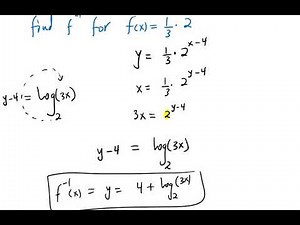 find f⁻ for f(x) = 1/3 · 2
y = 1/3 · 2^(x-4)
x = 1/3 · 2^(y-4)
y-4 = log₂(3x)
3x = 2^(y-4)
y-4 = log₂(3x)
f⁻¹(x) = y = 4 + log₂(3x)